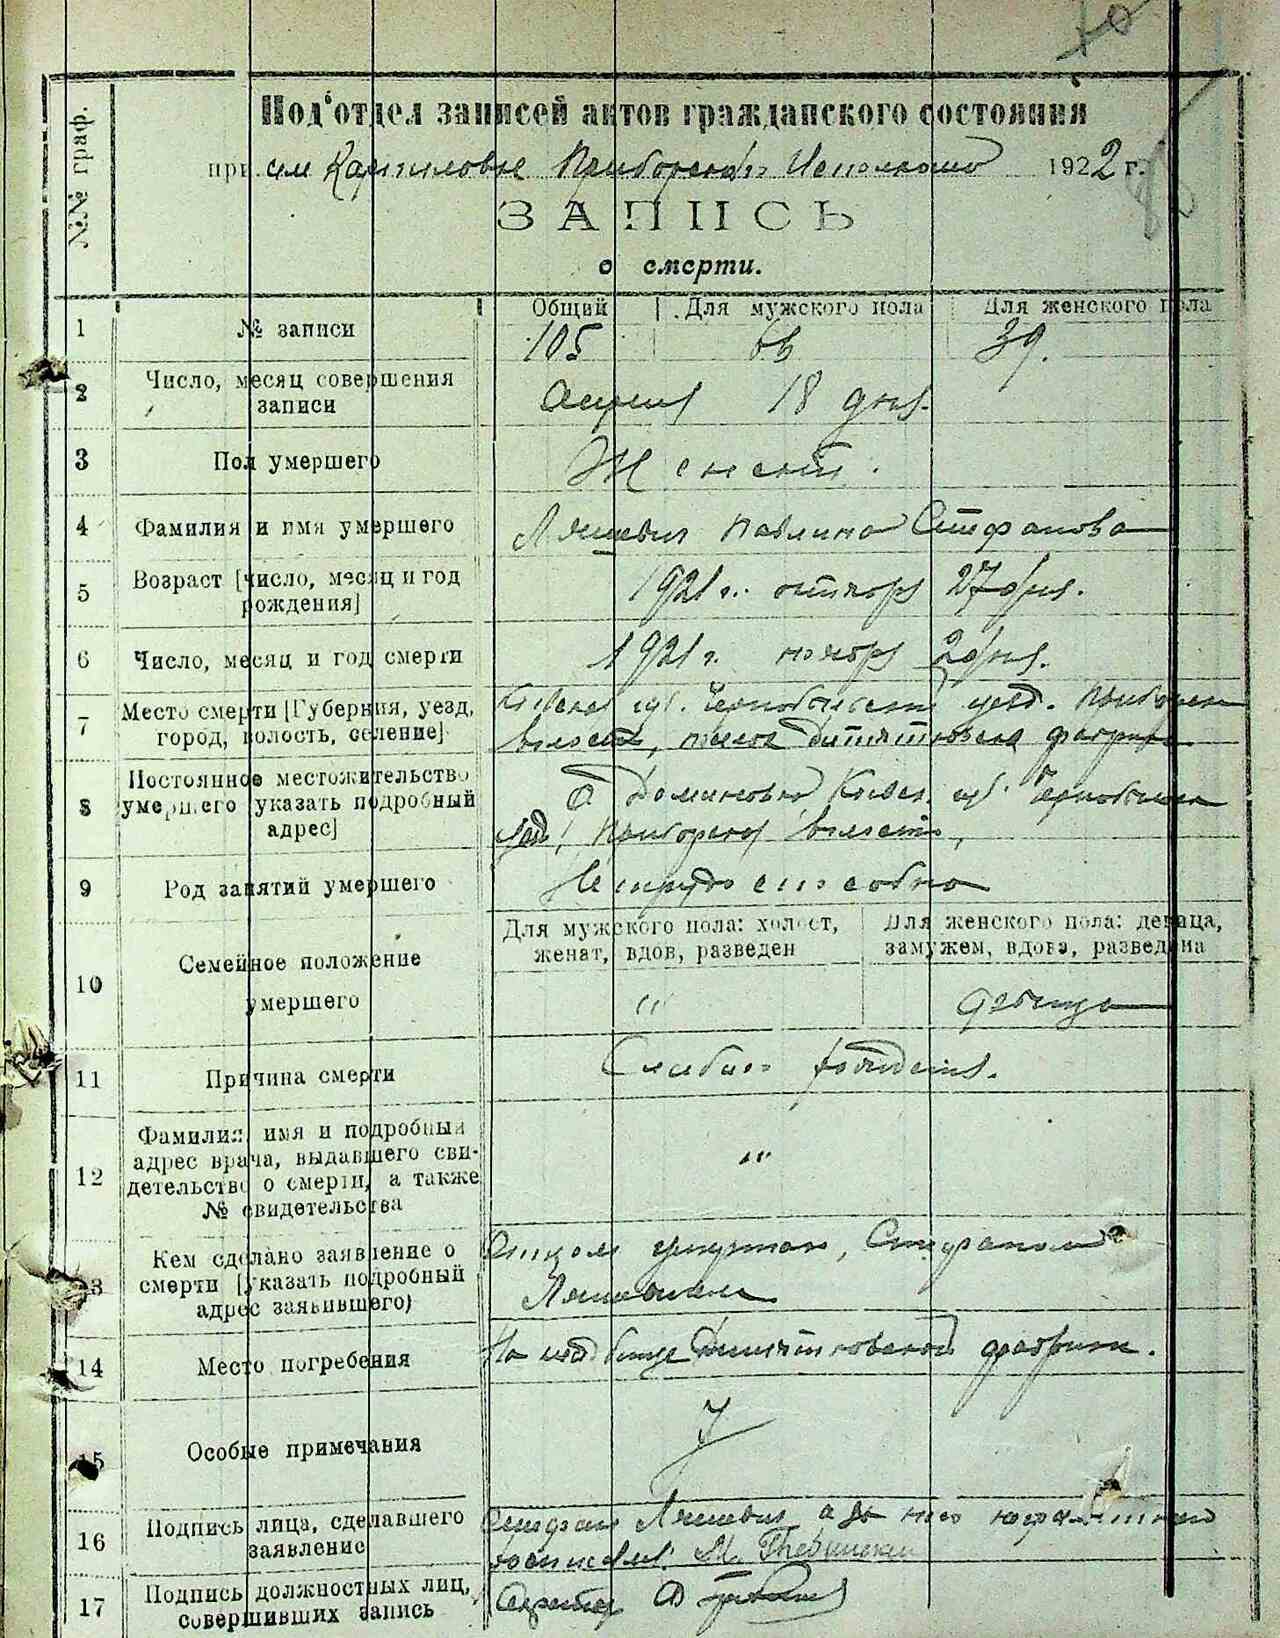 №№ граф.
Под'отдел записей актов гражданского состояния
при сим Карпиловке Приборском Исполкоме 1922 г.
ЗАПИСЬ
о смерти.
Общий Для мужского пола Для женского пола
1 № записи 105 66 39.
2 Число, месяц совершения записи
Апреля 18 дня.
3 Пол умершего Женский.
4 Фамилия и имя умершего Ляшевич Павлина Стефанова
5 Возраст [число, месяц и год рождения]
1921 г. октября 27 дня.
6 Число, месяц и год смерти 1921 г. ноября 2 дня.
7 Место смерти [Губерния, уезд, город, волость, селение]
Киевск губ. Чернобыльский уезд. Приборск
волость, Дитятковская фабрика
8 Постоянное местожительство умершего [указать подробный адрес]
Доминовка Киевск. губ. Чернобыльск
уезд, Приборской волости,
9 Род занятий умершего Нетрудоспособна
10 Семейное положение умершего
Для мужского пола: холост, женат, вдов, разведен
Для женского пола: девица, замужем, вдова, разведена
" девица
11 Причина смерти Слабое рождения.
12 Фамилия, имя и подробный адрес врача, выдавшего свидетельство о смерти, а также № свидетельства
"
13 Кем сделано заявление о смерти [указать подробный адрес заявившего)
Отцом умершей, Стефаном
Ляшевичем
14 Место погребения На кладбище Дитятковской фабрики.
15 Особые примечания
16 Подпись лица, сделавшего заявление
Стефан Ляшевич а за него неграмотного
росписался М.
17 Подпись должностных лиц, совершивших запись
Секретарь